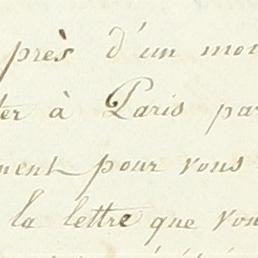 près d'un mon
ter à Paris par
ment pour vous
la lettre que vou